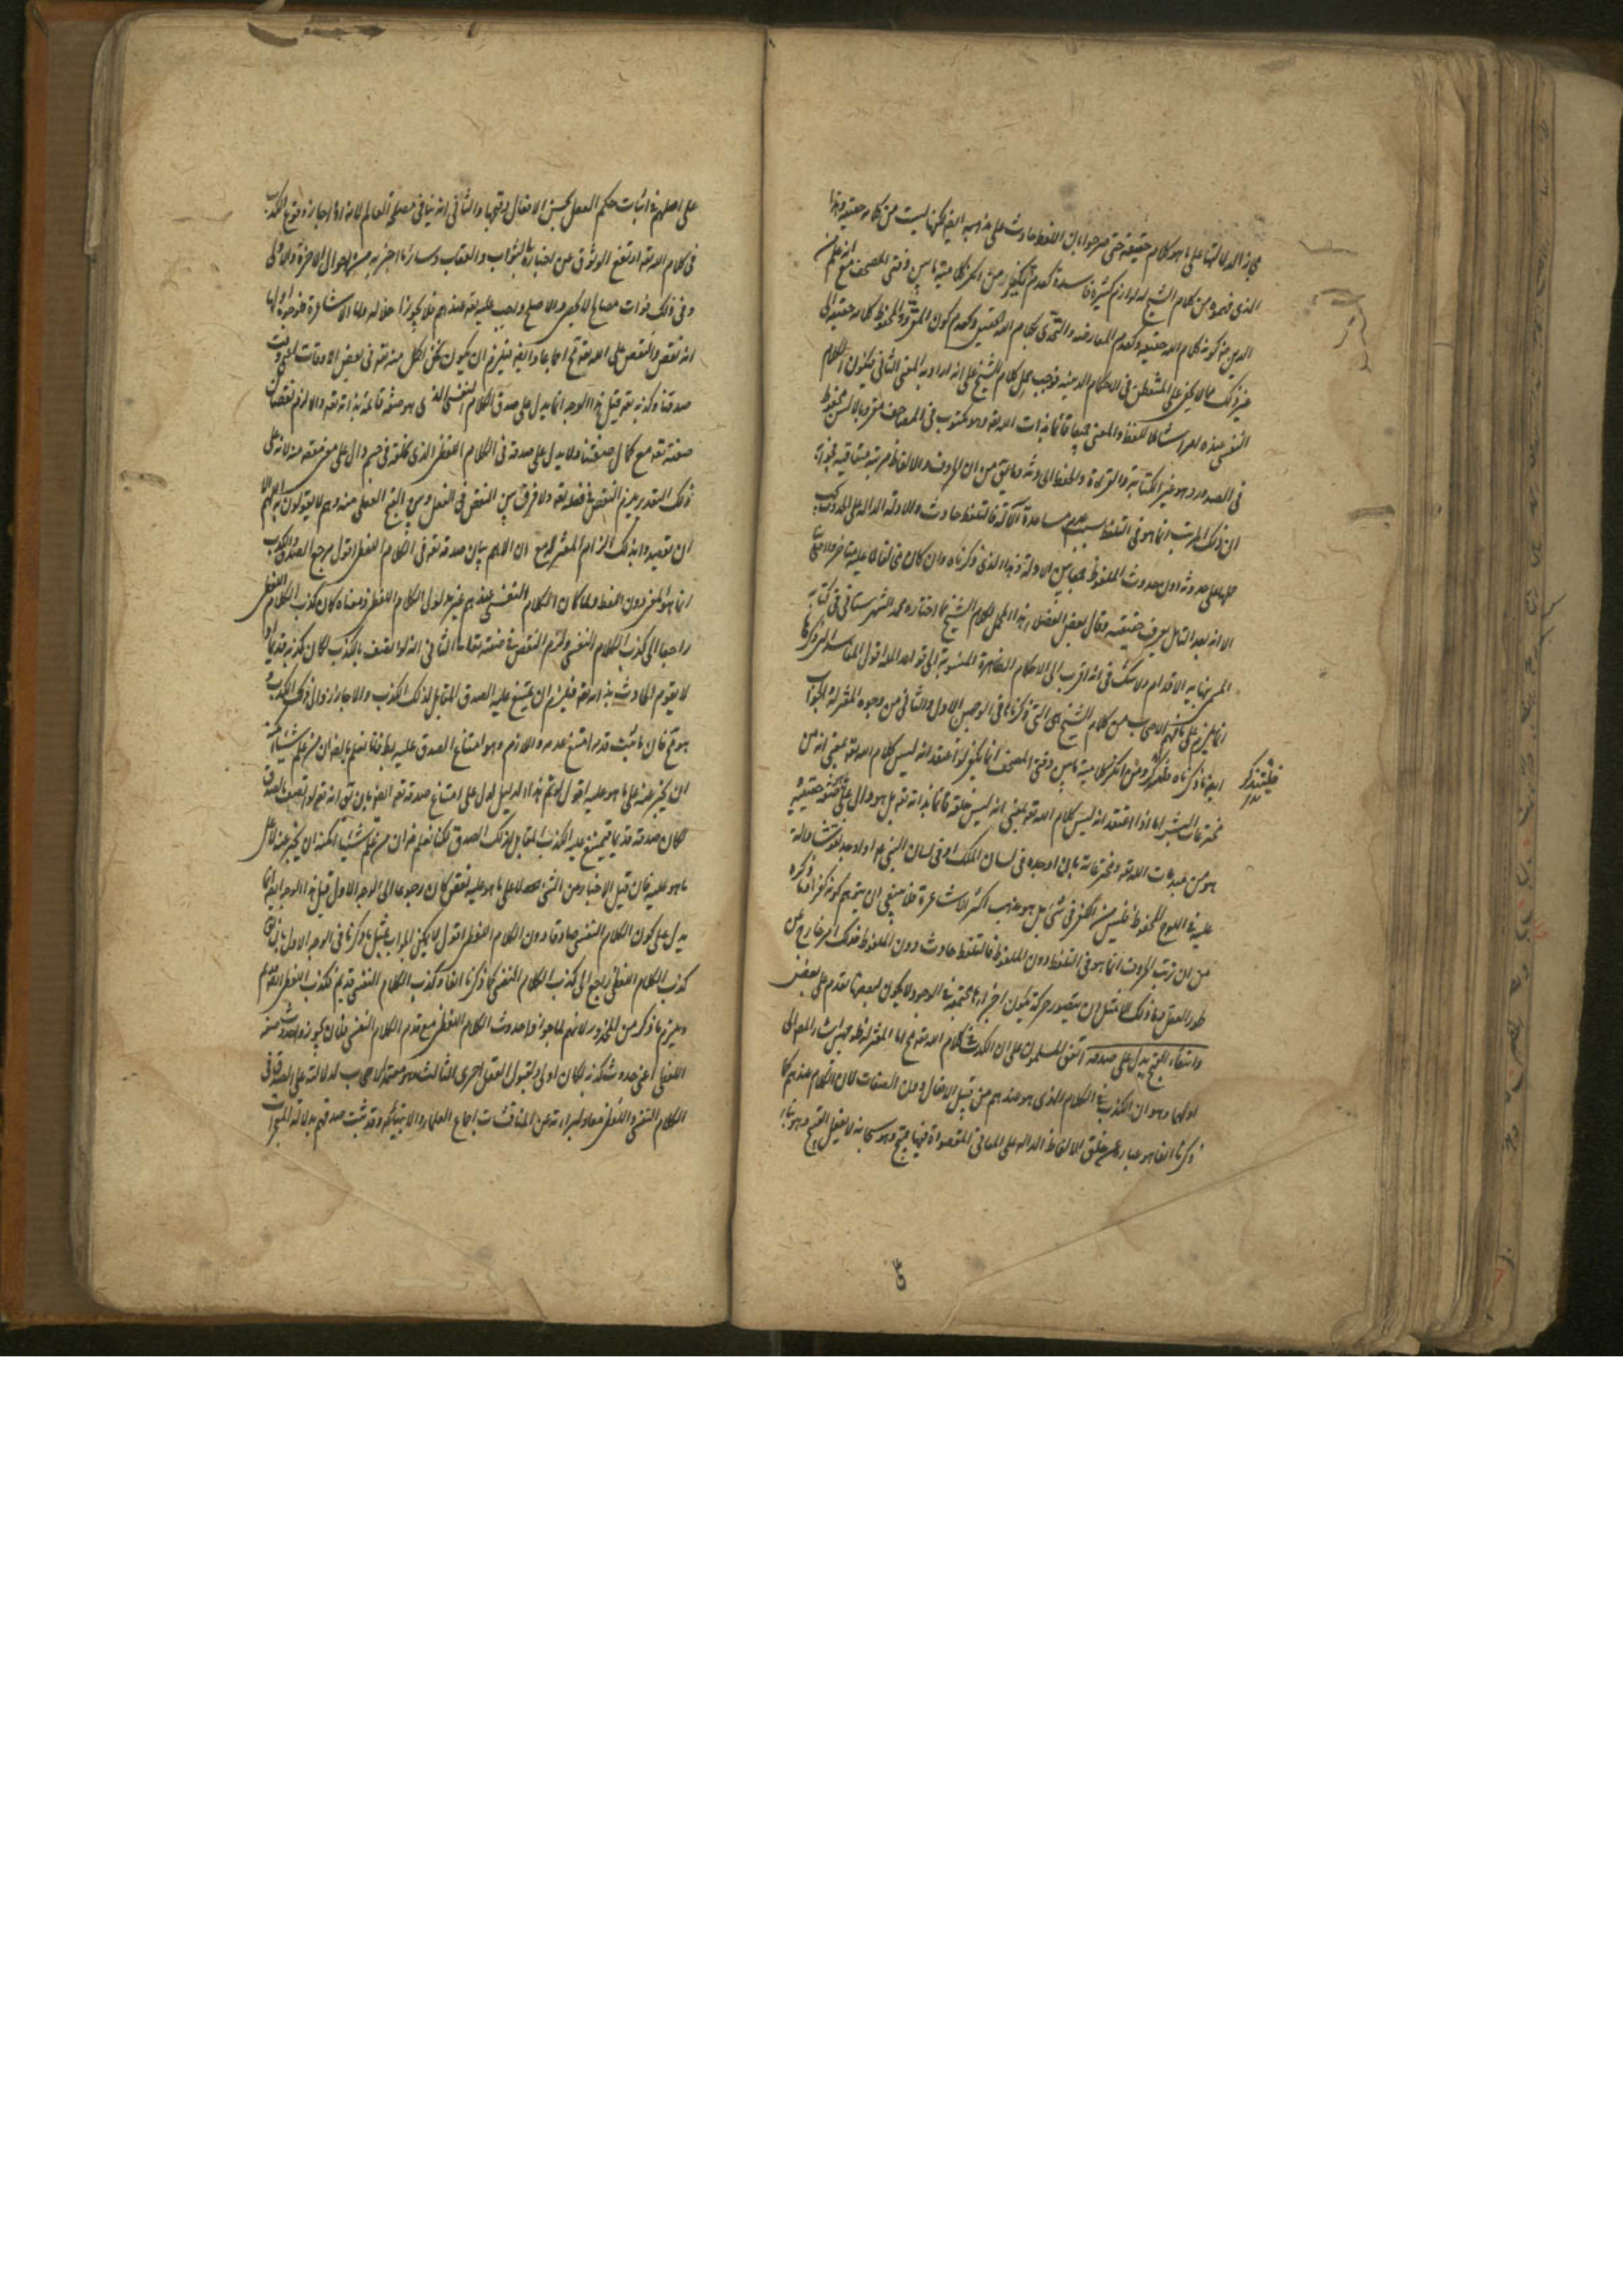 مجازا لدلالتها على ما هو كلام حقيقة حتى صرحوا بان اللفظ حادث على مذهبه ايضا لكنها ليست من كلامه حقيقة وهذا
الذى فهموه من كلام الشيخ له لوازم كثيرة فاسدة كعدم تكفير من انكر كلامية ما بين دفتى المصحف مع انه علم من
الدين من كونه كلام الله حقيقة وكعدم المعارضة والتحدى بكلام الله الحقيقى وكعدم كون المقروء والمحفوظ كلامه حقيقة الى
غير ذلك مما لا يخفى على المتفطن فى الاحكام الدينية فوجب حمل كلام الشيخ على انه اراد به المعنى الثانى فيكون الكلام
النفسى عنده امرا شاملا للفظ والمعنى جميعا قائما بذات الله تعه وهو مكتوب فى المصاحف مقرو بالالسن محفوظ
فى الصدور وهو غير الكتابة والقراءة والحفظ الحادثة وما يق من ان الحروف والالفاظ مترتبة متعاقبة فجوابه
ان ذلك الترتب انما هو فى التلفظ بسبب عدم مساعدة الآلة فالتلفظ حادث والادلة الدالة على الحدوث يجب
حملها على حدوثه دون حدوث الملفوظ جمعا بين الادلة وهذا الذى ذكرناه وان كان مخالفا لما عليه متاخروا اصحابنا
الا انه بعد التامل يعرف حقيقته وقال بعض الفضلاء هذا المحمل لكلام الشيخ مما اختاره محمد الشهرستانى فى كتابه
المسمى نهاية الاقدام ولا شك فى انه اقرب الى الاحكام الظاهرة المنسوبة الى قواعد الملة اقول المفاسد التى ذكرها
انما يلزم على ما فهم الاصحاب من كلام الشيخ هى التى ذكرناها فى الوجهين الاول والثانى من وجوه المعتزلة والجواب
ايضا ما ذكرناه فليتذكر ومن انكر كلامية ما بين دفتى المصحف انما يكفر لو اعتقد انه ليس كلام الله تعه بمعنى انه من
فليتذكر
مخترعات البشر اما اذا اعتقد انه ليس كلام الله تعه بمعنى انه ليس صفة قائما بذاته تعه بل هو دال على صفة حقيقية
هو من مبدعات الله تعه ومخترعاته بان اوجده فى لسان الملك او فى لسان النبى ع م او اوجد نقوشا دالة
عليه فى اللوح المحفوظ فليس من الكفر فى شئ بل هو مذهب اكثر الاشاعرة فلا ينبغى ان يتوهم كونه كفرا وما ذكره
من ان ترتب الحروف انما هو فى التلفظ دون الملفوظ فالتلفظ حادث دون الملفوظ فذلك امر خارج عن
طور العقل وما ذلك الا مثل ان يتصور حركة تكون اجزاؤها مجتمعة فى الوجود ولا يكون لبعضها تقدم على بعض
وانتفاء القبح يدل على صدقه اتفق المسلمون على ان الكذب فى كلام الله تعه مح اما المعتزلة فلوجهين اشار المص الى
اولهما وهو ان الكذب فى الكلام الذى هو عندهم من قبيل الافعال دون الصفات لان الكلام عندهم كما
ذكرنا انفا هو عبارة عن خلق الالفاظ الدالة على المعانى المقصودة فيها قبيح وهو سبحانه لا يفعل القبيح وهو بناء
على اصلهم فى اثبات حكم العقل بحسن الافعال وقبحها والثانى انه ينافى مصلحة العالم لانه اذا جاز وقوع الكذب
فى كلام الله تعه ارتفع الوثوق عن اخباره بالثواب والعقاب وسائر ما اخبر به من احوال الاخرة والاولى
وفى ذلك فوات مصالح لا تحصى والاصلح واجب عليه تعه عندهم فلا يجوز اخلاله واما الاشاعرة فلوجوه اولها
انه نقص والنقص على الله تعه مح اجماعا وايضا فيلزم ان يكون نحن اكمل منه تعه فى بعض الاوقات اعنى وقت
صدقنا وكذبه تعه قيل هذا الوجه انما يدل على صدق الكلام النفسى الذى هو صفة قائمة بذاته تعه والا لزم نقصان
صفته تعه مع كمال صفتنا ولا يدل على صدقه فى الكلام اللفظى الذى يخلقه فى جسم دال على معنى مقصود منه لانه على
ذلك التقدير يلزم النقص فى فعله تعه ولا فرق بين النقص فى الفعل وبين القبح العقلى عنه وهم لا يقولون به اللهم الا
ان يقصدوا بذلك الزام المعتزلة مع ان الاهم بيان صدقه تعه فى الكلام اللفظى اقول مرجع الصدق والكذب
انما هو المعنى دون اللفظ ولما كان الكلام النفسى عندهم هو مدلول الكلام اللفظى ومعناه كان كذب الكلام اللفظى
راجعا الى كذب الكلام النفسى ولزم النقص فى صفته تعالى الثانى انه لو اتصف بالكذب لكان كذبه قديما اذ
لا يقوم الحادث بذاته تعه فيلزم ان يمتنع عليه الصدق المقابل لذلك الكذب والا جاز زوال ذلك الكذب
وهو مح فان ما ثبت قدمه امتنع عدمه واللازم وهو امتناع الصدق عليه بط فانا نعلم بالضرورة ان من علم شيئا امكنه
ان يخبر عنه على ما هو عليه اقول لو تم هذا الدليل لدل على امتناع صدقه تعه ايضا بان يق انه تعه لو اتصف بالصدق
لكان صدقه قديما فيمتنع عليه الكذب المقابل لذلك الصدق لكنا نعلم ان من علم شيئا امكنه ان يخبر عنه لا على
ما هو عليه فان قيل الاخبار عن الشئ لا على ما هو عليه نقص كان رجوعا الى الوجه الاول قيل هذا الوجه ايضا انما
يدل على كون الكلام النفسى صادقا دون الكلام اللفظى اقول لا يمكن الجواب بمثل ما ذكرنا فى الوجه الاول بان يق
كذب الكلام اللفظى راجع الى كذب الكلام النفسى كما ذكرنا انفا وكذب الكلام النفسى قديم فكذب اللفظى ايضا قديم
ويلزم ما ذكر من المحذور لانهم لما جوزوا حدوث الكلام اللفظى مع قدم الكلام النفسى فلان يجوزوا حدوث صفة
اللفظى اعنى حدوث كذبه لكان اولى ولقبول العقل احرى الثالث وهو معتمد الاصحاب لدلالته على الصدق فى
الكلام النفسى واللفظى معا ولبراءته عن المناقشات اجماع العلماء والانبياء وقد ثبت صدقهم بدلالة المعجزات